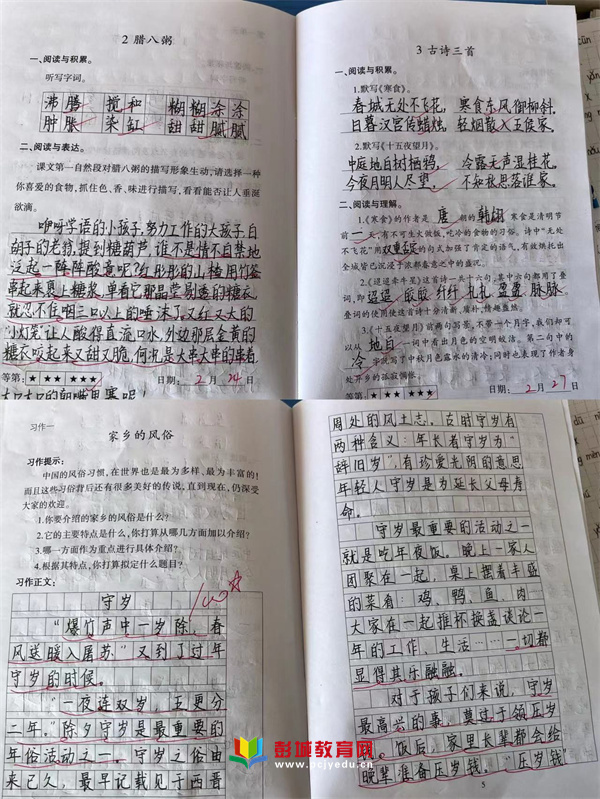 2 腊八粥
一、阅读与积累。
听写字词。
沸腾 搅和 糊糊涂涂
肿胀 染缸 甜甜腻腻
二、阅读与表达。
课文第一自然段对腊八粥的描写形象生动,请选择一种
你喜爱的食物,抓住色、香、味进行描写,看看能否让人垂涎
欲滴。
咿呀学语的小孩子,努力工作的大孩子,白
胡子的老爷,提到糖葫芦,谁不是情不自禁地
泛起一阵阵酸意呢?红彤彤的山楂用竹签
串起来裹上糖浆,单看它那晶莹剔透的糖衣,
就忍不住咽三口以上的唾沫了。又红又大的
小灯笼让人酸得直流口水,外边那层金黄的
糖衣咬起来又甜又脆,何况是大串大串的串着
等第:★ ★★ ★★★ ★★★★ 日期:2月24日
3 古诗三首
一、阅读与积累。
1.默写《寒食》。
春城无处不飞花,寒食东风御柳斜。
日暮汉宫传蜡烛,轻烟散入五侯家。
2.默写《十五夜望月》。
中庭地白树栖鸦,冷露无声湿桂花。
今夜月明人尽望,不知秋思落谁家。
二、阅读与理解。
1.《寒食》的作者是唐朝的韩翃,寒食是清明节
前一天,有不可生火做饭,吃冷的食物的习俗。诗中“无处
不飞花”用双重否定的句式加强了肯定的语气,有效烘托出
全城皆已沉浸于浓郁春意之中的盛况。
2.《迢迢牵牛星》这首诗一共十六句,其中六句都用了叠
词,即迢迢、皎皎、纤纤、札札、盈盈、脉脉,
叠词的使用使这首诗十分清新、质朴,情趣盎然。
3.《十五夜望月》前两句写景,不带一个月字,我们却可
以从地白一词中看出月色的空明皎洁。第二句中的
冷字既写了中秋月色露水的清冷;同时也表现了作者身
处异乡的孤寂惆怅。
等第:★ ★★ ★★★ ★★★★ 日期:2月27日
习作一
家乡的风俗
习作提示:
中国的风俗习惯,在世界也是最为多样、最为丰富的!
而且这些习俗背后还有很多美好的传说,直到现在,仍深受
大家的欢迎。
1.你要介绍的家乡的风俗是什么?
2.它的主要特点是什么,你打算从哪几方面加以介绍?
3.哪一方面作为重点进行具体介绍?
4.根据其特点,你打算拟定什么题目?
习作正文:
100☆
守岁
“爆竹声中一岁除,春
风送暖入屠苏”又到了过年
守岁的时候。
“一夜连双岁,五更分
二年。”除夕守岁是最重要的
年俗活动之一。守岁之俗由
来已久,最早记载见于西晋
周处的风土志。古时守岁有
两种含义:年长者守岁为“
辞旧岁”,有珍爱光阴的意思
年轻人守岁是为延长父母寿
命。
守岁最重要的活动之一
就是吃年夜饭。晚上一家人
团聚在一起,桌上摆着丰盛
的菜肴:鸡、鸭、鱼、肉……
大家在一起推杯换盏谈论一
年的工作、生活……一切都
显得其乐融融。
对于孩子们来说,守岁
最高兴的事,莫过于领压岁
钱。饭后,家里长辈都会给
晚辈准备压岁钱。“压岁钱”
5
彭城教育网
www.pcjyedu.cn